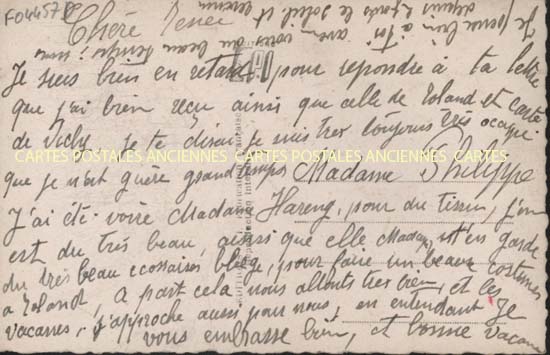 F04457
Chère Renée
Je pense bien à toi
avons du beau temps
depuis 2 jours le soleil est revenu
Je suis bien en retard pour repondre à ta lettre
que j'ai bien reçu ainsi que celle de Roland et carte
de Vichy, je te dirai je suis très toujours très occupé
CARTES POSTALES ANCIENNES CARTES POSTALES ANCIENNES CARTES POSTALES ANCIENNES
que je n'ait guère grand temps Madame Philippe
J'ai été voire Madame Hareng, pour du tissu, j'en
est du très beau, ainsi que elle Madam est en garde
du très beau ecossaires beige, pour faire un beau costumes
a Roland, a part cela nous allonts très bien, et les
vacances, s'approche aussi pour nous, en entendant Je
vous embrasse bien, et bonne vacance